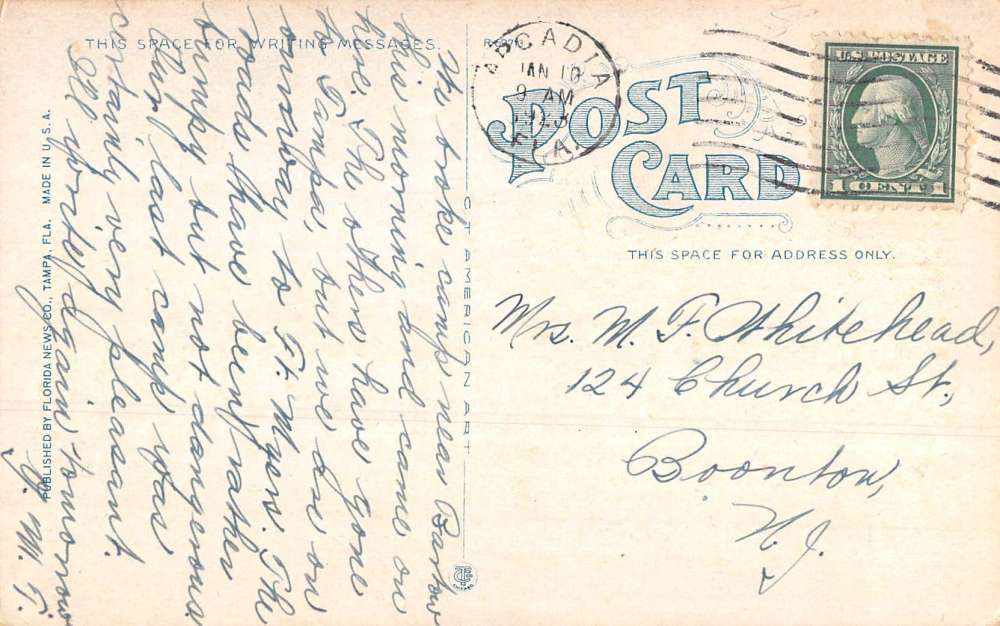 THIS SPACE FOR WRITING MESSAGES.
We broke camp near Bartow
this morning and came on
here. The others have gone
to Tampa, but we go on
our way to Ft. Myers. The
roads have been rather
bumpy but not dangerous.
Our last camp was
certainly very pleasant.
I'll write again tomorrow
M. F.
PUBLISHED BY FLORIDA NEWS CO., TAMPA, FLA. MADE IN U.S.A.
C.T. AMERICAN ART
ARCADIA
JAN 10
9 AM
1923
FLA.
POST
CARD
U.S. POSTAGE
1 CENT 1
THIS SPACE FOR ADDRESS ONLY.
Mrs. M. F. Whitehead,
124 Church St.,
Boonton,
N. J.